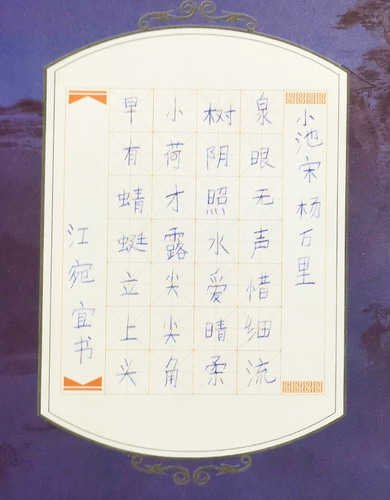 小池宋杨万里
泉眼无声惜细流
树阴照水爱晴柔
小荷才露尖尖角
早有蜻蜓立上头
江宛宜书